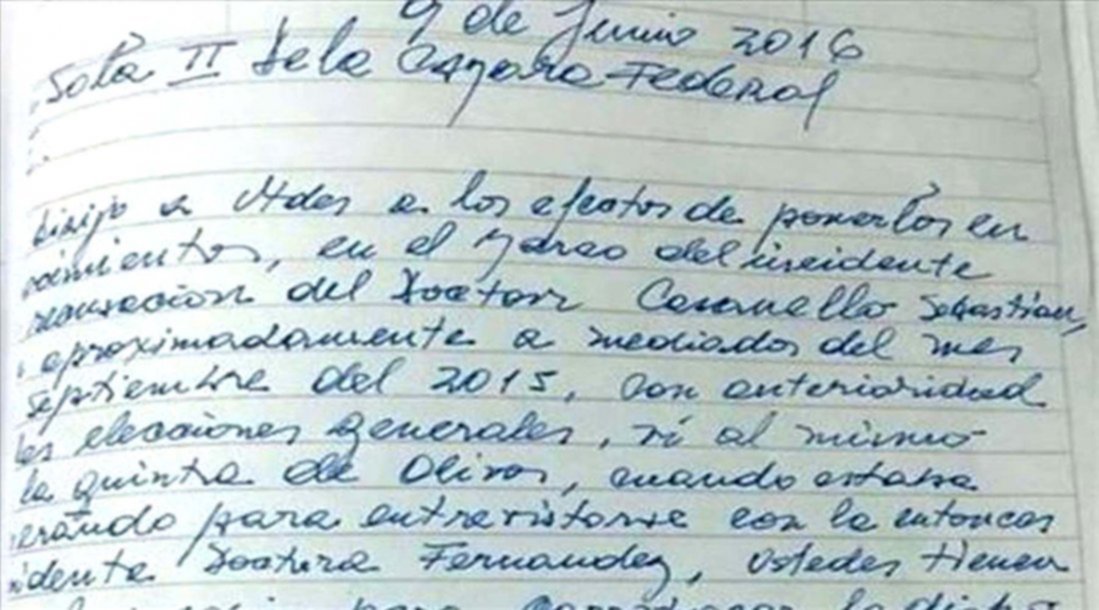 9 de Junio 2016
Sala II de la Camara Federal
dirijo a Uds a los efectos de ponerlos en
ocimientos, en el marco del incidente
recusacion del Doctor Casanello Sebastian,
aproximadamente a mediados del mes
septiembre del 2015, con anterioridad
las elecciones generales, vi al mismo
la quinta de Olivos, cuando estaba
erando para entrevistarse con la entonces
idente Doctora Fernandez, ustedes tienen
para corroborar lo dicho